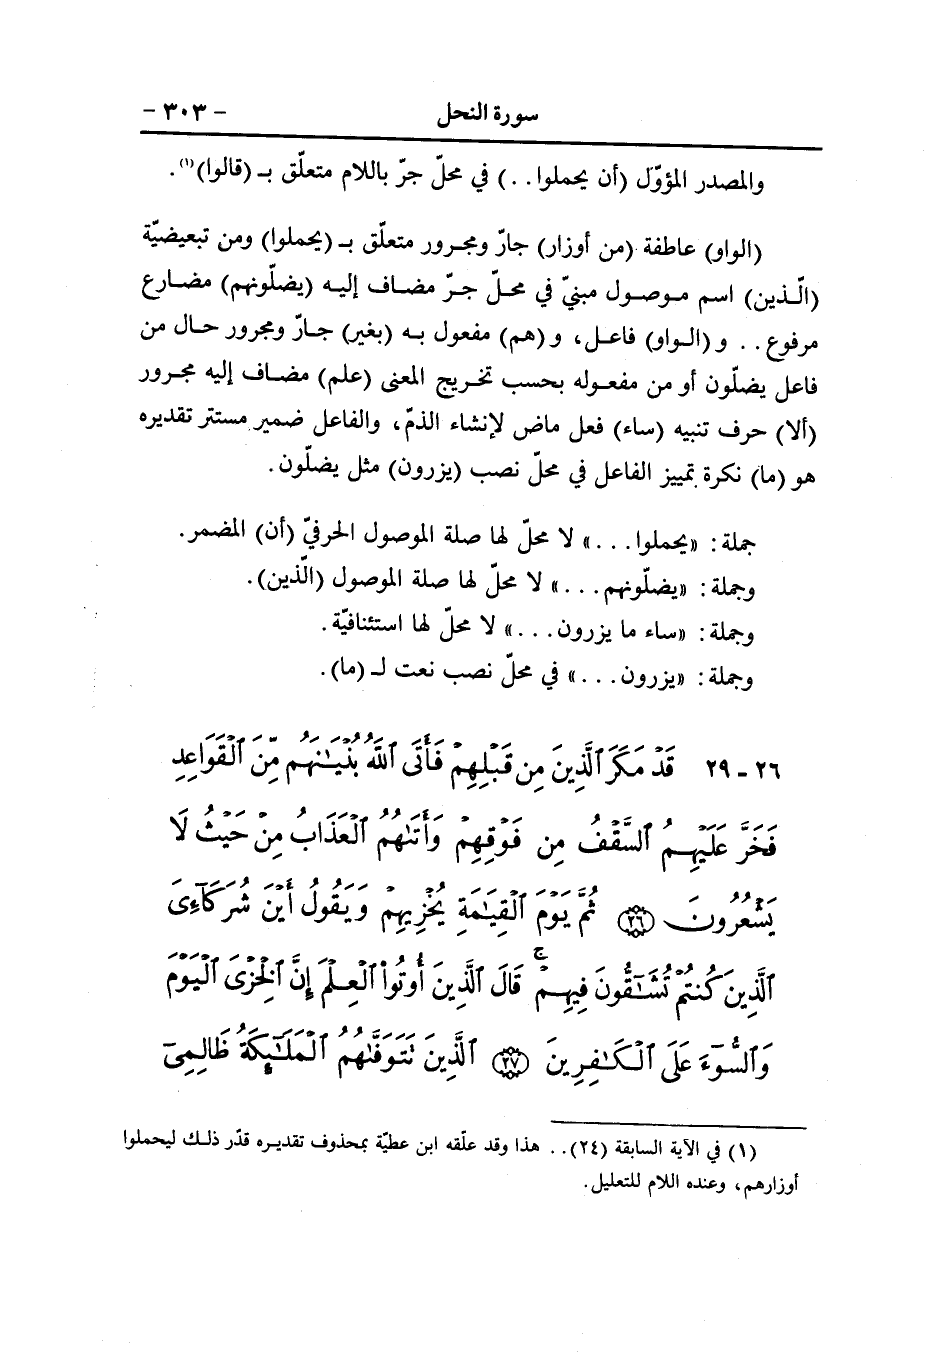 سورة النحل - ٣٠٣ -
والمصدر المؤوّل (أن يحملوا . . ) في محلّ جرّ باللام متعلّق بـ (قالوا)(١).
(الواو) عاطفة (من أوزار) جارّ ومجرور متعلّق بـ (يحملوا) ومن تبعيضيّة
(الّذين) اسم موصول مبنيّ في محلّ جرّ مضاف إليه (يضلّونهم) مضارع
مرفوع . . و (الواو) فاعل، و (هم) مفعول به (بغير) جارّ ومجرور حال من
فاعل يضلّون أو من مفعوله بحسب تخريج المعنى (علم) مضاف إليه مجرور
(ألا) حرف تنبيه (ساء) فعل ماض لإنشاء الذمّ، والفاعل ضمير مستتر تقديره
هو (ما) نكرة تمييز الفاعل في محلّ نصب (يزرون) مثل يضلّون.
جملة: «يحملوا . . .» لا محلّ لها صلة الموصول الحرفيّ (أن) المضمر.
وجملة: «يضلّونهم . . .» لا محلّ لها صلة الموصول (الّذين).
وجملة: «ساء ما يزرون . . .» لا محلّ لها استئنافيّة.
وجملة: «يزرون . . .» في محلّ نصب نعت لـ (ما).
٢٦ - ٢٩ قَدْ مَكَرَ ٱلَّذِينَ مِن قَبْلِهِمْ فَأَتَى ٱللَّهُ بُنْيَـٰنَهُم مِّنَ ٱلْقَوَاعِدِ
فَخَرَّ عَلَيْهِمُ ٱلسَّقْفُ مِن فَوْقِهِمْ وَأَتَىٰهُمُ ٱلْعَذَابُ مِنْ حَيْثُ لَا
يَشْعُرُونَ ﴿٢٦﴾ ثُمَّ يَوْمَ ٱلْقِيَـٰمَةِ يُخْزِيهِمْ وَيَقُولُ أَيْنَ شُرَكَآءِىَ
ٱلَّذِينَ كُنتُمْ تُشَـٰٓقُّونَ فِيهِمْ ۚ قَالَ ٱلَّذِينَ أُوتُوا۟ ٱلْعِلْمَ إِنَّ ٱلْخِزْىَ ٱلْيَوْمَ
وَٱلسُّوٓءَ عَلَى ٱلْكَـٰفِرِينَ ﴿٢٧﴾ ٱلَّذِينَ تَتَوَفَّىٰهُمُ ٱلْمَلَـٰٓئِكَةُ ظَالِمِىٓ
(١) في الآية السابقة (٢٤) . . هذا وقد علّقه ابن عطيّة بمحذوف تقديره قدّر ذلك ليحملوا
أوزارهم، وعنده اللام للتعليل.